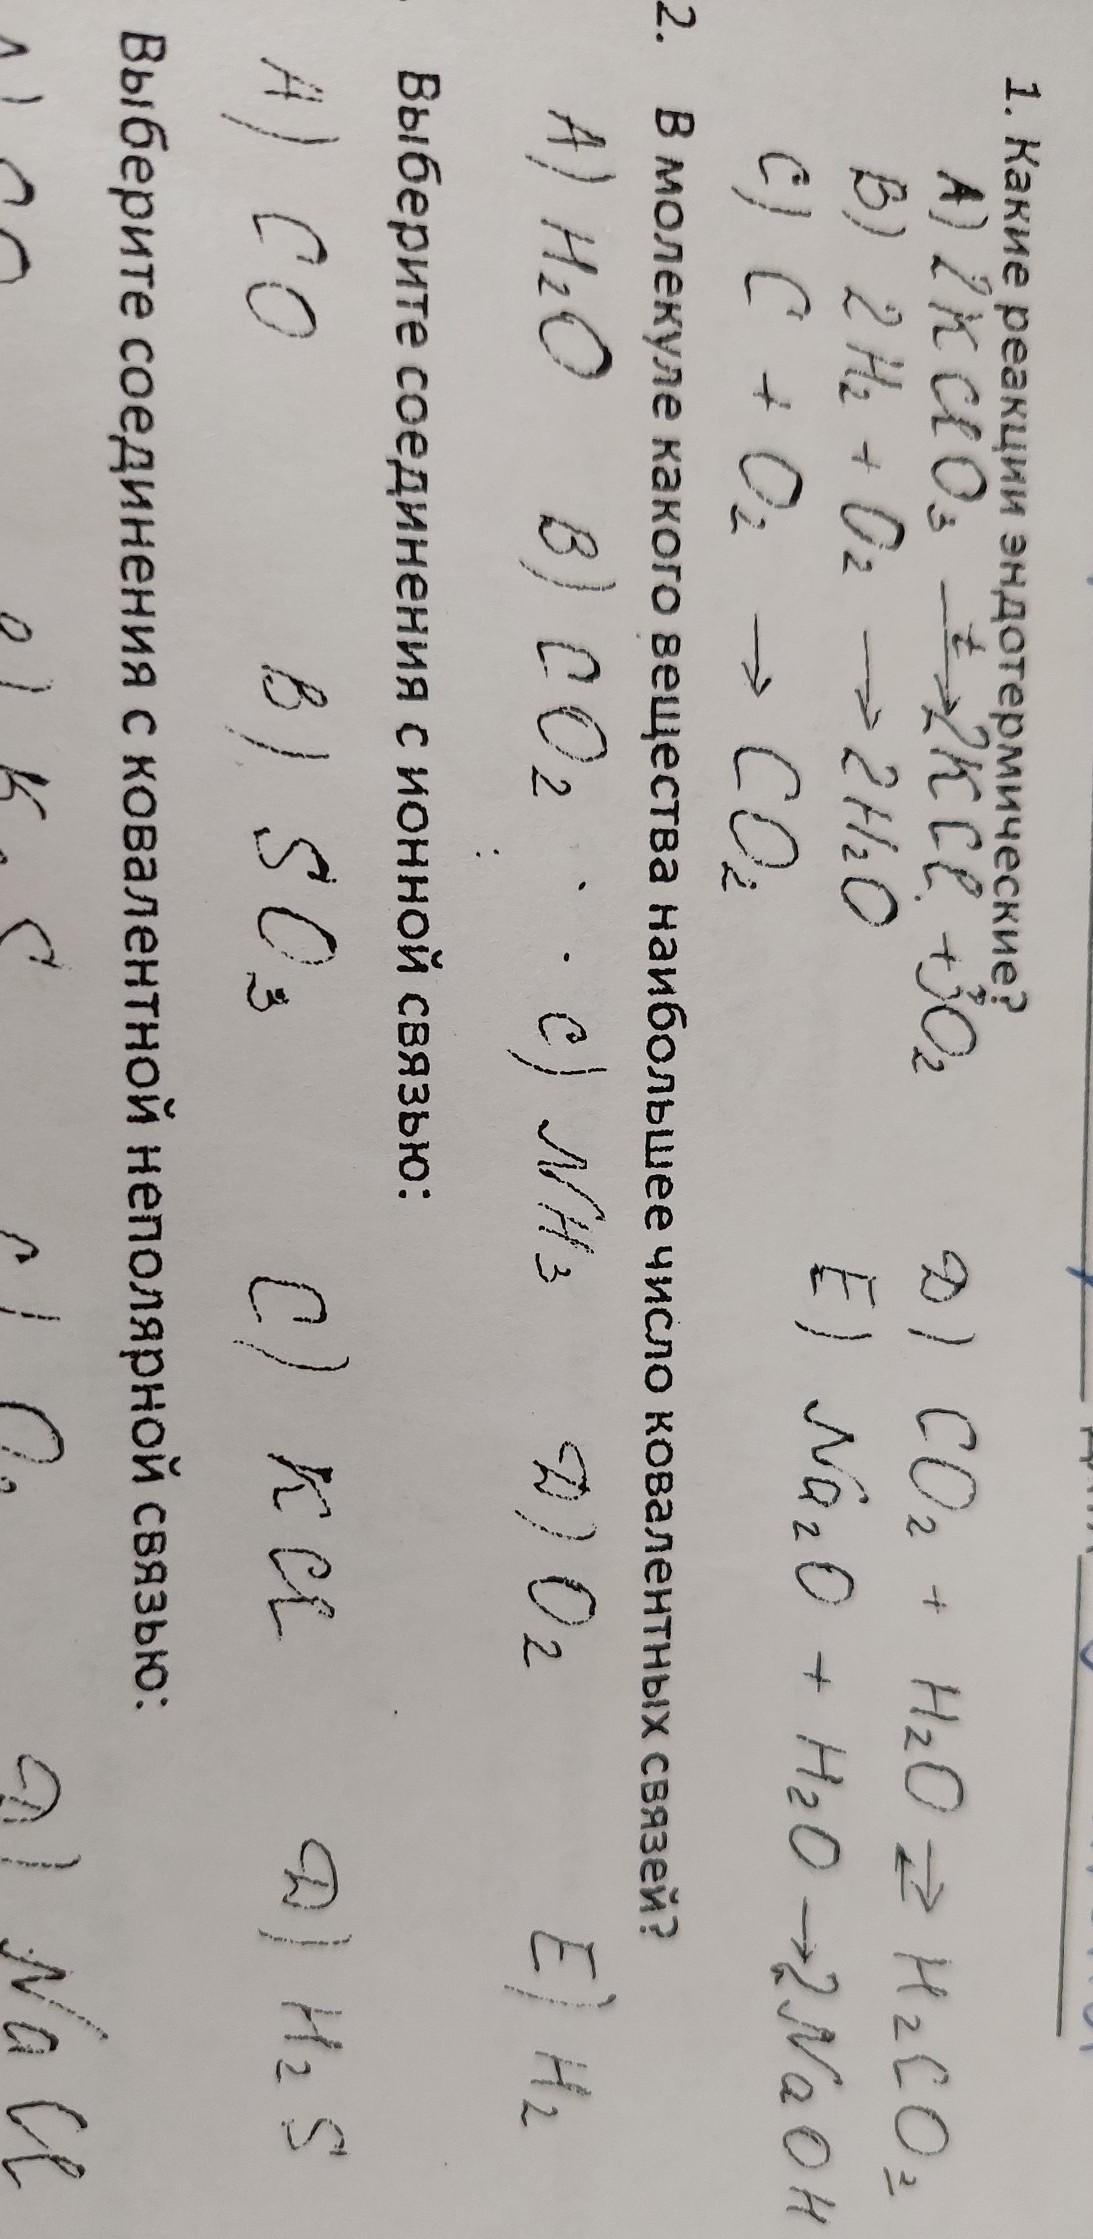 1. Какие реакции эндотермические?
A) 2KClO₃ →t 2KCl + 3O₂
B) 2H₂ + O₂ → 2H₂O
C) C + O₂ → CO₂
D) CO₂ + H₂O ⇄ H₂CO₂
E) Na₂O + H₂O → 2NaOH
2. В молекуле какого вещества наибольшее число ковалентных связей?
A) H₂O B) CO₂ C) NH₃ D) O₂ E) H₂
Выберите соединения с ионной связью:
A) CO B) SO₃ C) KCl D) H₂S
Выберите соединения с ковалентной неполярной связью:
D) NaCl